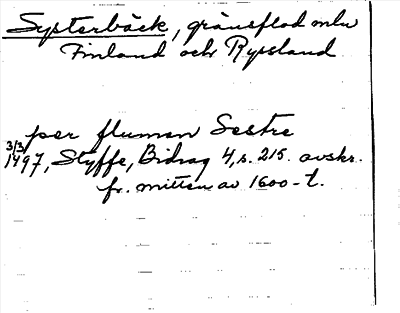 Systerbäck, gränsflod mln
Finland och Ryssland
per flumen Sestre
3/3
1497, Styffe, Bidrag 4, s. 215. avskr.
fr. mitten av 1600-t.